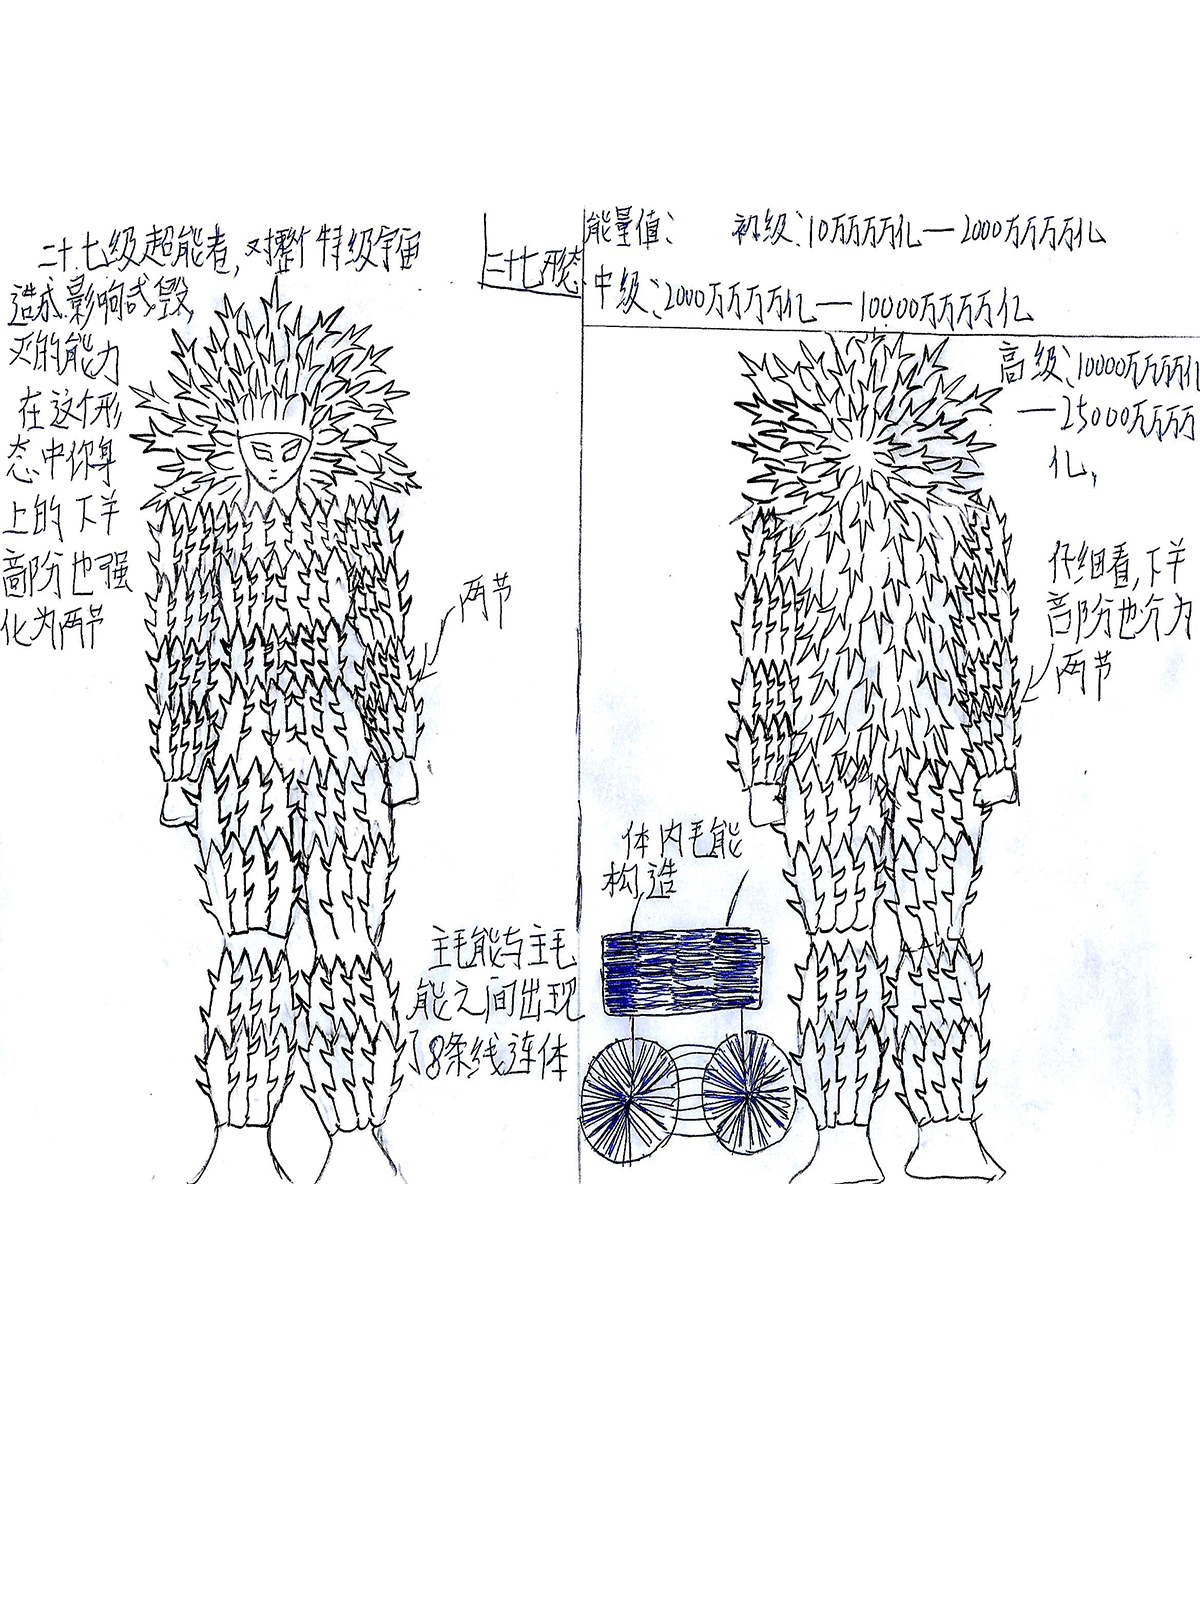 二十七级超能者，对整个特级宇宙
造成影响或毁
灭的能力
在这个形
态中你身
上的下半
部份也强
化为两节
二十七形态
两节
主毛能与主毛
能之间出现
了8条线连体
能量值： 初级：10万万万亿—2000万万万亿
中级：2000万万万亿—10000万万万亿
高级：10000万万万亿
—25000万万万
亿，
仔细看，下半
部份也分为
两节
体内毛能
构造